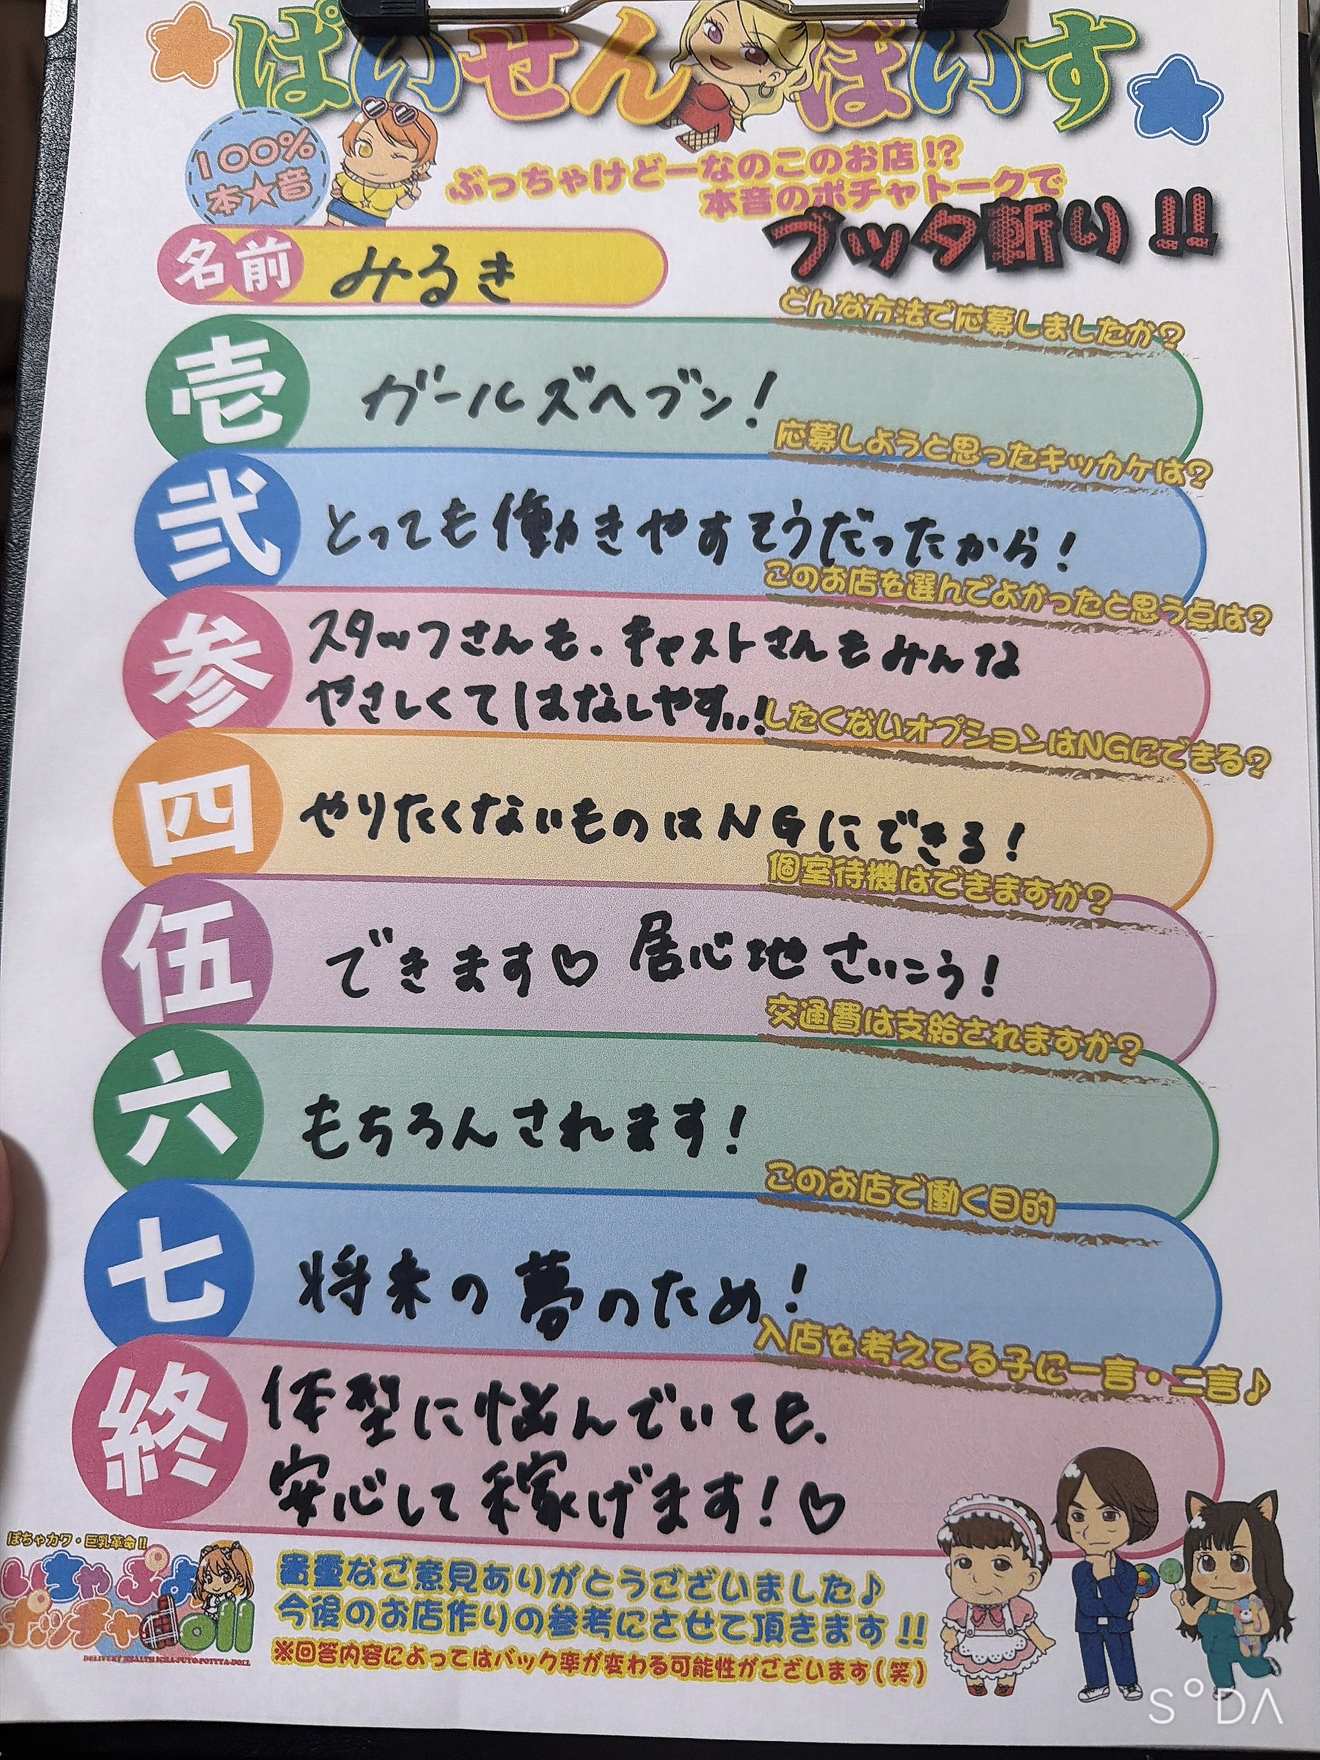 ぱいせんぼいす
100%
本★音
ぶっちゃけどーなのこのお店!?
本音のポチャトークで
ブッタ斬り!!
名前 みるき
どんな方法で応募しましたか?
壱 ガールズヘブン!
応募しようと思ったキッカケは?
弐 とっても働きやすそうだったから!
このお店を選んでよかったと思う点は?
参 スタッフさんも、キャストさんもみんな
やさしくてはなしやす..!
したくないオプションはNGにできる?
四 やりたくないものはNGにできる!
個室待機はできますか?
伍 できます♡ 居心地さいこう!
交通費は支給されますか?
六 もちろんされます!
このお店で働く目的
七 将来の夢のため!
入店を考えてる子に一言・二言♪
終 体型に悩んでいても、
安心して稼げます!♡
ぽちゃカワ・巨乳革命!!
いちゃぷよ
ポッチャdoll
DELIVERY HEALTH ICHA-PUYO POTTYA-DOLL
貴重なご意見ありがとうございました♪
今後のお店作りの参考にさせて頂きます!!
※回答内容によってはバック率が変わる可能性がございます(笑)
SODA